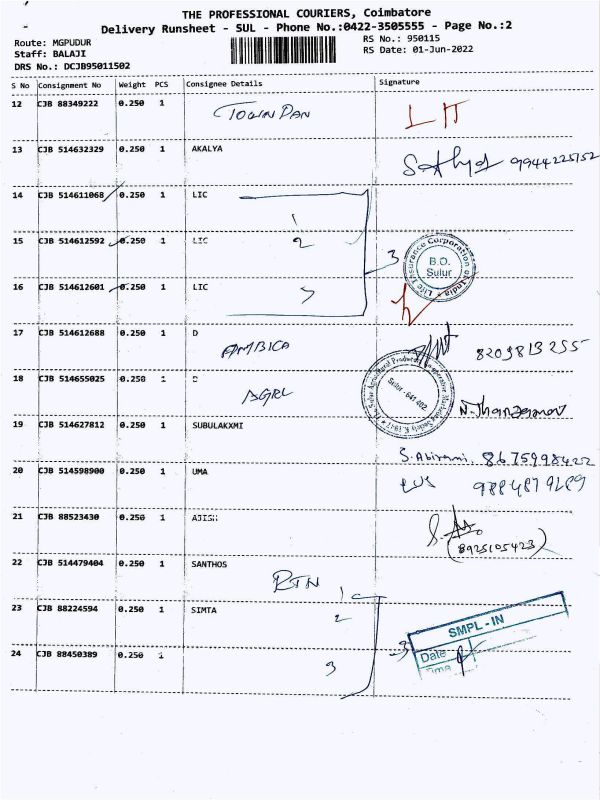 THE PROFESSIONAL COURIERS, Coimbatore
Delivery Runsheet - SUL - Phone No.:0422-3505555 - Page No.:2
Route: MGPUDUR
RS No.: 950115
Staff: BALAJI
RS Date: 01-Jun-2022
DRS No.: DCJB95011502
S No Consignment No Weight PCS Consignee Details Signature
12 CJB 88349222 0.250 1
13 CJB 514632329 0.250 1 AKALYA
Sathya 9944225152
14 CJB 514611068 0.250 1 LIC
1
15 CJB 514612592 0.250 1 LIC
2
3
Life Insurance Corporation of India
B.O.
Sulur
16 CJB 514612601 0.250 1 LIC
3
17 CJB 514612688 0.250 1 D
AMBICA
8209813255
18 CJB 514655025 0.250 1 D
AGRL
Sulur - 641 402
19 CJB 514627812 0.250 1 SUBULAKXMI
S. Abirami. 8675998422
20 CJB 514598900 0.250 1 UMA
21 CJB 88523430 0.250 1 AJISH
(8925105423)
22 CJB 514479404 0.250 1 SANTHOS
RTN
1
23 CJB 88224594 0.250 1 SIMTA
2
3
SMPL - IN
Date
24 CJB 88450389 0.250 1
3